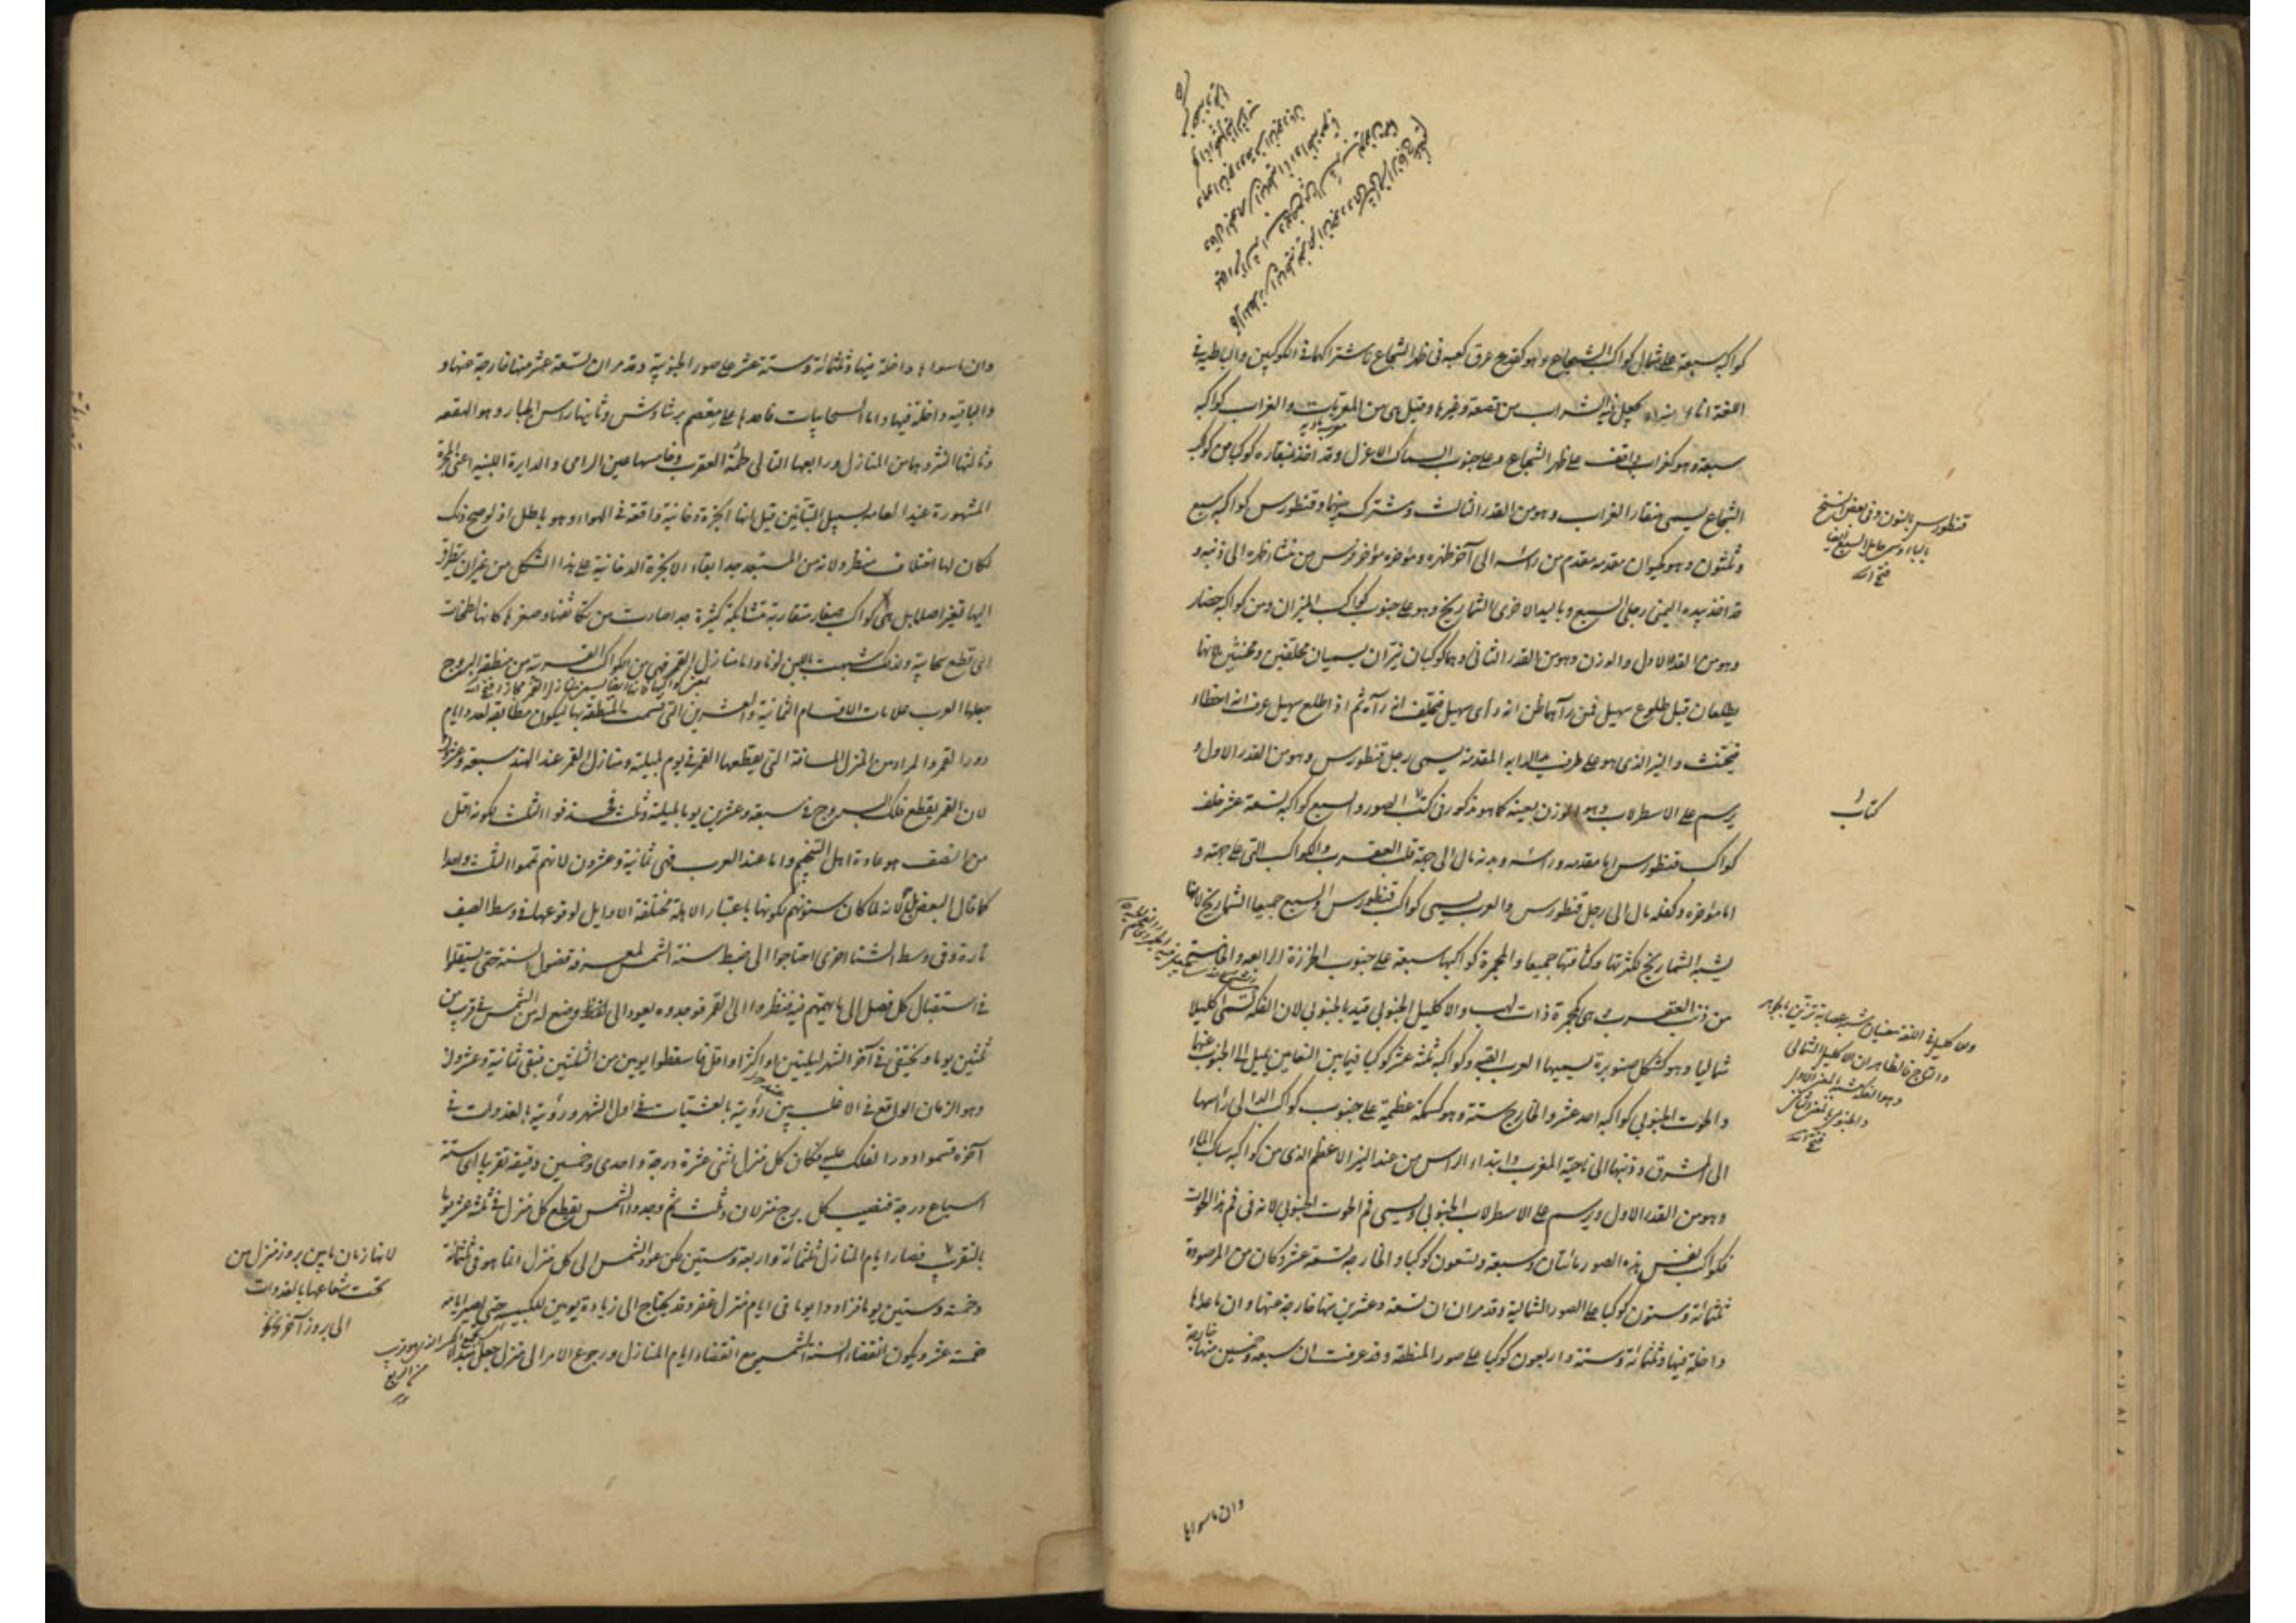 كواكبه سبعة على شمال كواكب الشجاع وهو كقدح عرق كعبه فى ظهر الشجاع لاشتراكهما فى الكوكبين والباطية فى
اللغة اناء يجعل فيه الشراب من قصعة وغيرها وقيل هى من المعربات والغراب كواكبه
سبعة وهو كغراب واقف على ظهر الشجاع وعلى جنوب السماك الاعزل وقد اخذ بمنقاره كوكبا من كواكب
الشجاع يسمى منقار الغراب وهو من القدر الثالث ومشترك بينهما وقنطورس كواكبه سبع
وثلثون وهو كحيوان مقدمه مقدم من راسه الى آخر ظهره ومؤخره مؤخر فرس من منشاء ظهره الى ذنبه و
قد اخذ بيده اليمنى رجلى السبع وباليد الاخرى الشماريخ وهو على جنوب كواكب الميزان ومن كواكبه حضار
وهو من القدر الاول والوزن وهو من القدر الثانى وهما كوكبان نيران يسميان محلفين ومحنثين لانهما
يطلعان قبل طلوع سهيل فمن رآهما ظن انه رأى سهيل فيحلف انه رآه ثم اذا طلع سهيل عرف انه اخطاء
فيحنث والنير الذى هو على طرف يد الدابه المقدمة يسمى رجل قنطورس وهو من القدر الاول و
يرسم على الاسطرلاب وهو الوزن بعينه كما هو مذكور فى كتب الصور والسبع كواكبه تسعة عشر خلف
كواكب قنطورس اما مقدمه وراسه وبدنه مال الى جهة قلب العقرب والكواكب التى على جهته و
اما مؤخره وكفله مال الى رجل قنطورس والعرب يسمى كواكب قنطورس والسبع جميعا الشماريخ لانها
يشبه الشماريخ لكثرتها وكثافتها جميعا والمجمرة كواكبها سبعة على جنوب الخرزة الرابعة والخامسة
من ذنب العقرب وهى كمجمرة ذات لهب والاكليل الجنوبى قيد بالجنوبى لان الفكة تسمى اكليلا
شماليا وهو كشكل صنوبرة يسميها العرب القبة وكواكبه ثلثة عشر كوكبا فيما بين النعامين يميل الى الجنوب عنهما
والحوت الجنوبى كواكبه احد عشر والخارج ستة وهو كسمكة عظيمة على جنوب كواكب الدالى راسها
الى المشرق وذنبها الى ناحية المغرب وابتداء الراس من عند النير الاعظم الذى من كواكبه ساكب الماء
وهو من القدر الاول ويرسم على الاسطرلاب الجنوبى ويسمى فم الحوت الجنوبى لانه فى فم هذا الحوت
فكواكب نفس هذه الصور مائتان وسبعة وتسعون كوكبا والخارجة تسعة عشر وكان من المرصودة
ثلثمائة وستون كوكبا على الصور الشمالية وقد مر ان تسعة وعشرين منها خارجة عنها وان ما عداها
داخلة فيها وثلثمائة وستة واربعون كوكبا على صور المنطقة وقد عرفت ان سبعة وخمسين منها خارجة
قنطورس بالنون وفى بعض النسخ
بالباء
فتح الله
كتاب
والاكليل فى اللغة بمعنيان شبه عصابة تزين بالجواهر
والتاج فالظاهر ان الاكليل الشمالى
وهو الفكة شبه بالمعنى الاول
والجنوبى بالمعنى الثانى
فتح الله
وان ما سواها
وان ما سواها داخلة فيها وثلثمائة وستة عشر على صور الجنوبية وقد مر ان تسعة عشر منها خارجة عنها و
والباقية داخلة فيها واما السحابيات فاحدها على معصم برشاوش وثانيها راس الجبار وهو الهقعة
وثالثها النثرة وهما من المنازل ورابعها التالى حمة العقرب وخامسها عين الرامى والدايرة اللبنية اعنى المجرة
المشهورة عند العامة بسبيل التبانين قيل انها ابخرة دخانية واقعة فى الهواء وهو باطل اذ لو صح ذلك
لكان لها اختلاف منظر ولانه من المستبعد جدا بقاء الابخرة الدخانية على هذا الشكل من غير ان يتطرق
اليها تغير اصلا بل هى كواكب صغار متقاربة متشابكة كثيرة جدا صارت من تكاثفها وصغرها كانها لطخات
اى قطع سحابية ولذلك شبهت باللبن لونا واما منازل القمر فهى من الكواكب القريبة من منطقة البروج
جعلها العرب علامات الاقسام الثمانية والعشرين التى قسمت المنطقة بها ليكون مطابقة لعدد ايام
دور القمر والمراد من المنزل المسافة التى يقطعها القمر فى يوم بليلته ومنازل القمر عند الهند سبعة وعشرون
لان القمر يقطع فلك البروج فى سبعة وعشرين يوما بليلته وثلث فحذفوا الثلث لكونه اقل
من النصف هو عادة اهل التنجيم واما عند العرب فهى ثمانية وعشرون لانهم تمموا الثلث واحدا
كما قال البعض بل لانه لما كان سنوهم لكونها باعتبار الاهلة مختلفة الاوايل لوقوعها فى وسط الصيف
تارة وفى وسط الشتا اخرى احتاجوا الى ضبط سنة الشمس لمعرفة فصول السنة حتى يستقلوا
فى استقبال كل فصل الى ما يهمهم فيه فنظروا الى القمر فوجدوه يعود الى وضع له من الشمس فى قرب من
ثلثين يوما ويختفى فى آخر الشهر ليلتين او اكثر او اقل فاسقطوا يومين من الثلثين فبقى ثمانية وعشرون
وهو الزمان الواقع فى الاغلب بين رؤية بالعشيات فى اول الشهر ورؤية بالغدوات فى
آخره فقسموا دور الفلك عليه فكان كل منزل اثنى عشرة درجة واحدى وخمسين دقيقة تقريبا اى ستة
اسباع درجة فنصيب كل برج منزلان وثلث ثم وجدوا الشمس يقطع كل منزل فى ثلثة عشر يوما
بالتقريب فصار ايام المنازل ثلثمائة واربعة وستين لكن عود الشمس الى كل منزل انما هو فى ثلثمائة
وخمسة وستين يوما فزادوا يوما فى ايام منزل غفر وقد يحتاج الى زيادة يومين للكبيسة حتى يصير ايامه
خمسة عشر ويكون انقضاء السنة الشمسى مع انقضاء ايام المنازل ورجوع الامر الى منزل جعل مبداء
لانها زمان ما بين بروز منزل من
تحت شعاعها بالغدوات
الى بروز آخر